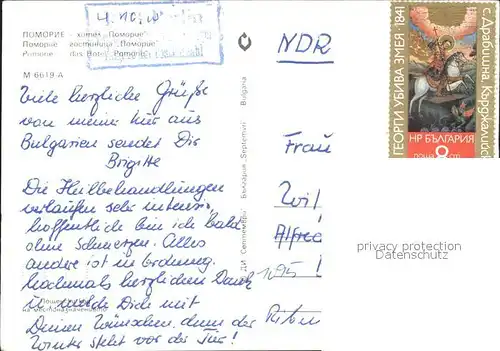 ПОМОРИЕ - хотел „Поморие"
Поморие гостиница „Поморие"
Pomorie das Hotel „Pomorie"
М 6619-А
Viele herzliche Grüße
von meiner Kur aus
Bulgarien sendet Dir
Brigitte
Die Heilbehandlungen
verlaufen sehr intensiv,
hoffentlich bin ich bald
ohne Schmerzen. Alles
andere ist in Ordnung.
Nochmals herzlichen Dank
u. melde Dich mit
Deinen Wünschen, denn der
Winter steht vor der Tür!
ДИ „Септември" България „Septemvri" Bulgaria
NDR
Frau
Alfred
1095
!
ГЕОРГИ УБИВА ЗМЕЯ·1841
НР БЪЛГАРИЯ
поща 8 ст
privacy protection
Datenschutz